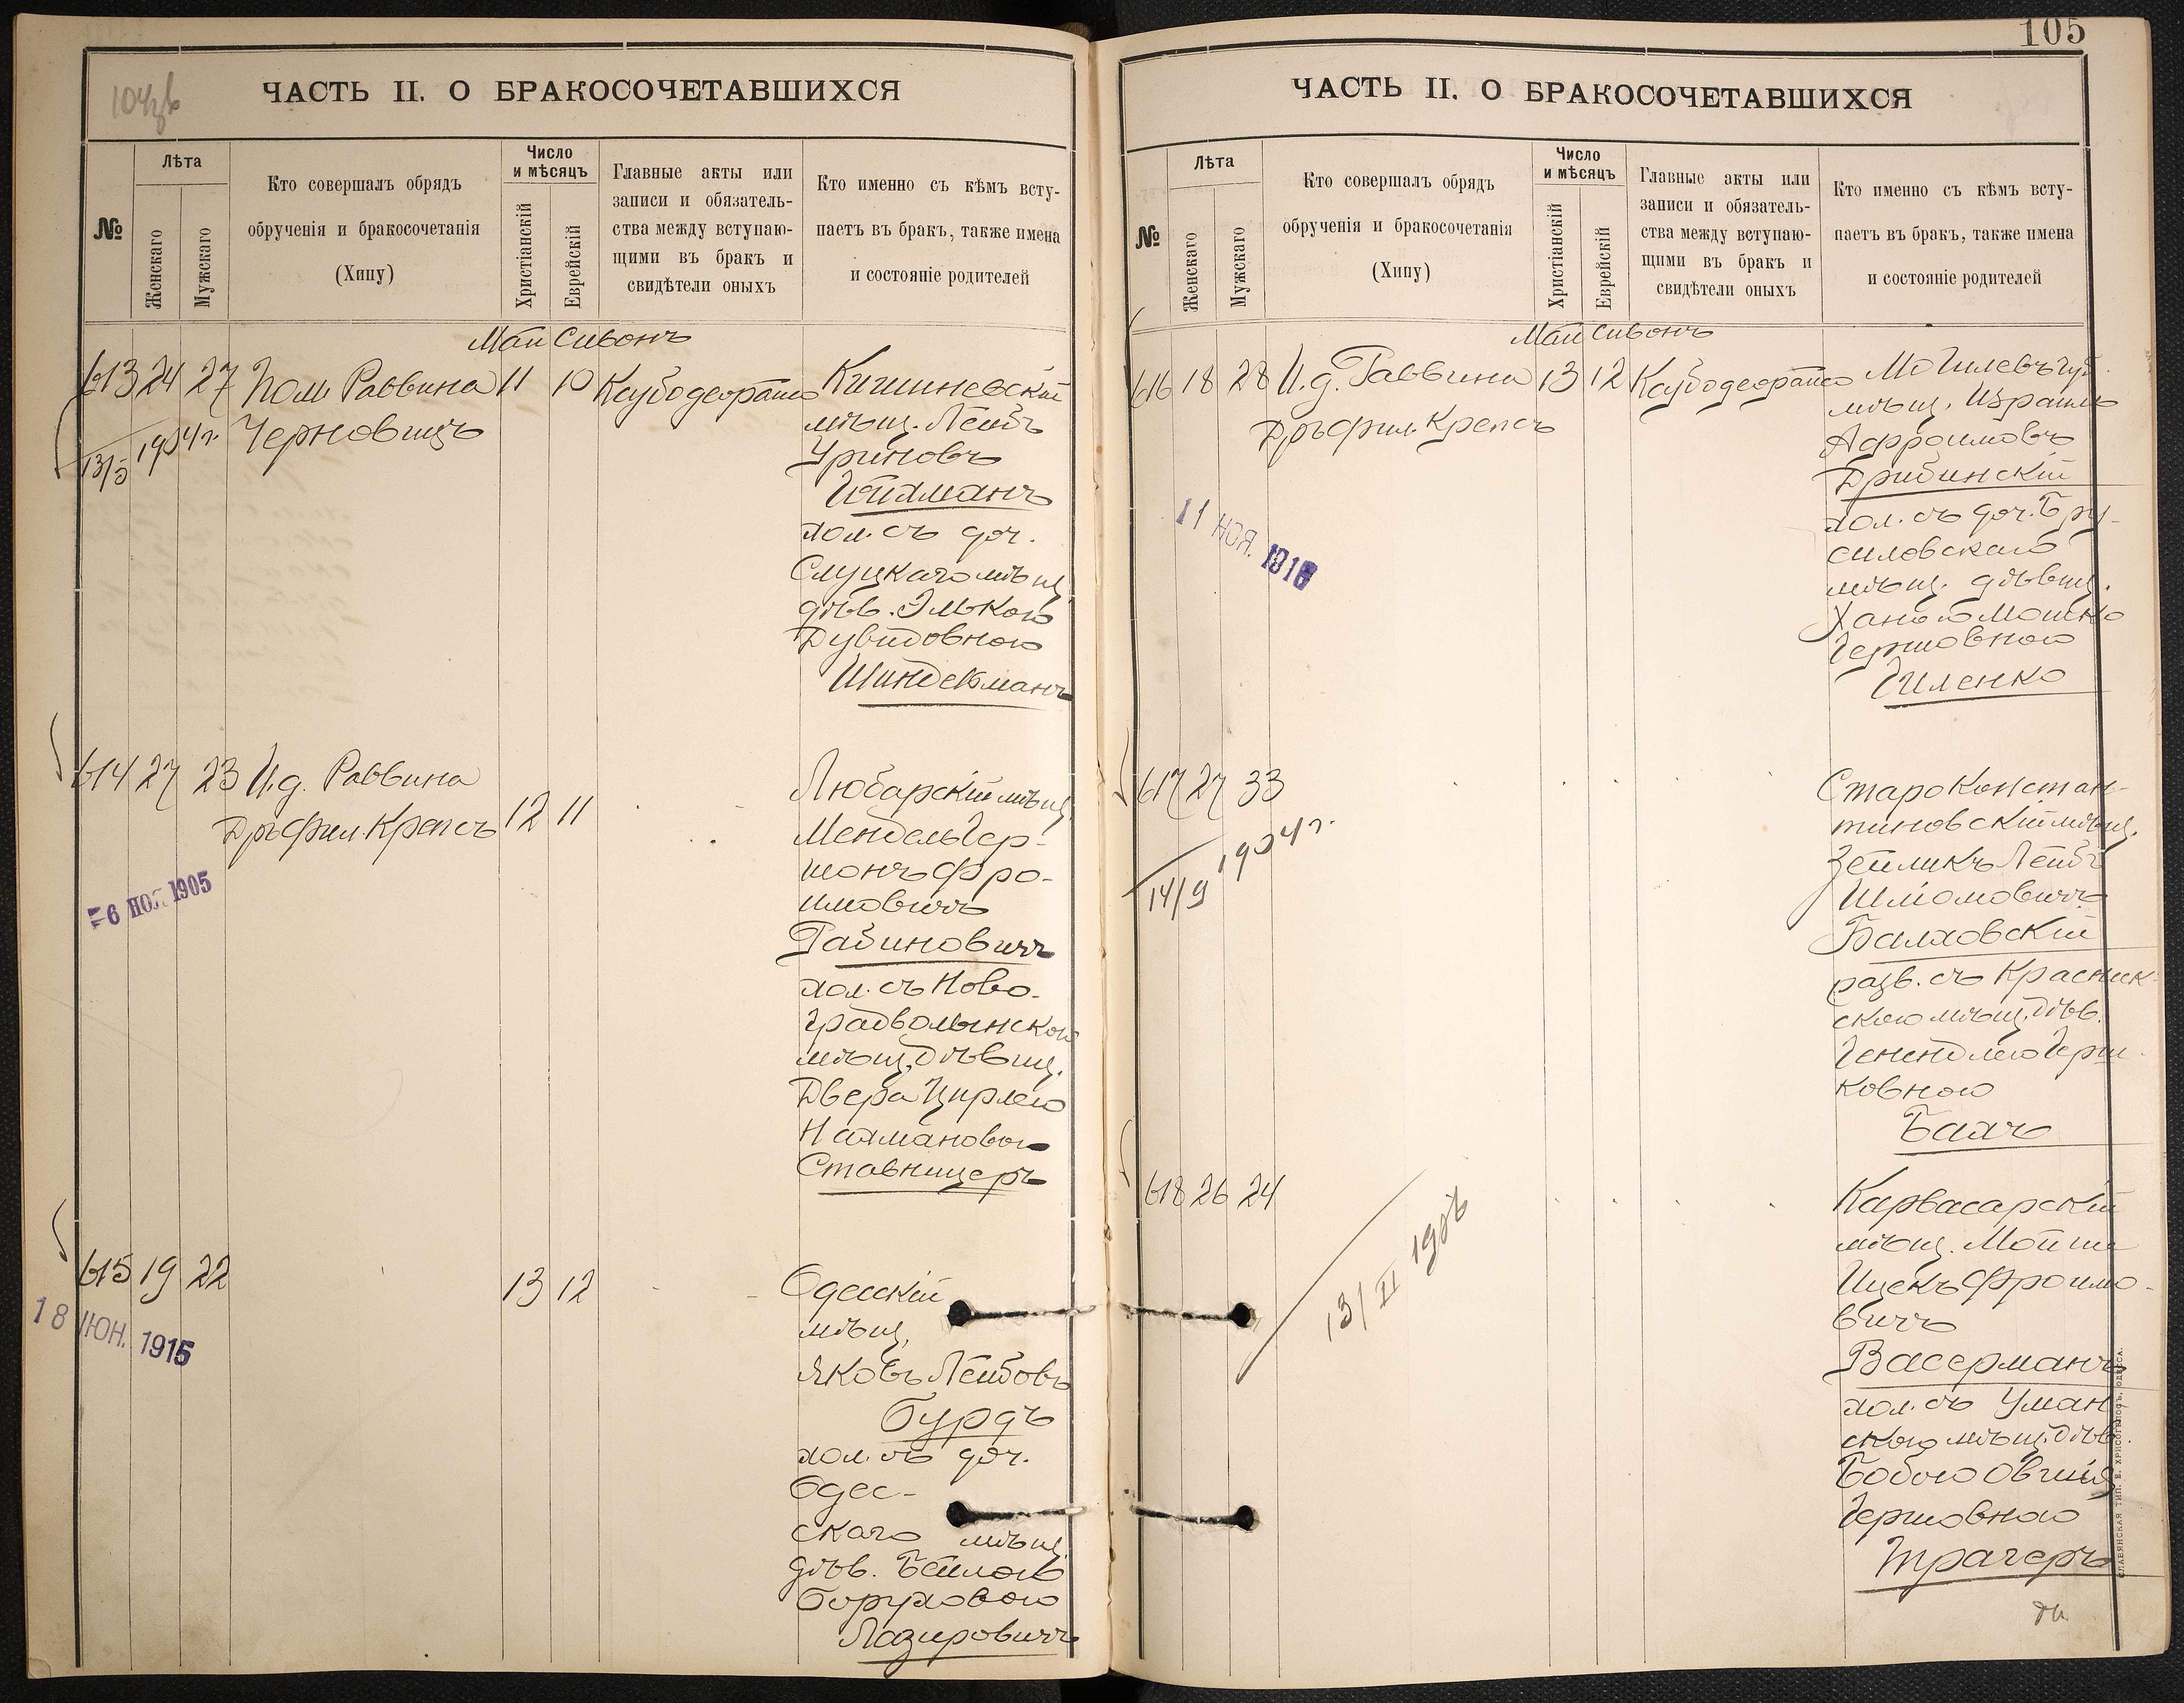 104об
ЧАСТЬ II. О БРАКОСОЧЕТАВШИХСЯ
№
Лѣта
Женскаго
Мужскаго
Кто совершалъ обрядъ
обрученія и бракосочетанія
(Хипу)
Число
и мѣсяцъ
Христіанскій
Еврейскій
Главные акты или
записи и обязатель-
ства между вступаю-
щими въ бракъ и
свидѣтели оныхъ
Кто именно съ кѣмъ всту-
паетъ въ бракъ, также имена
и состояніе родителей
Май Сивонъ
613 24 27 Пом. Раввина 11 10
Черновицъ
13/5 1904 г.
Кишиневскій
мѣщ. Лейбъ
Уриновъ
хол. съ доч.
Слуцкаго мѣщ
дѣв. Элькою
Дувидовною
614 27 23 И.д. Раввина
Дръ Фил. Крепсъ 12 11
6 НОЯ 1905
Любарскій мѣщ
Мендель Гер-
шонъ Фро-
имовичъ
Рабиновичъ
хол. съ Ново-
градволынскою
мѣщ. дѣвиц.
Двера Цирлею
Нахмановою
Ставницеръ
615 19 22 13 12
18 ИЮН. 1915
Одесскій
мѣщ.
Яковъ Лейбовъ
Бурдъ
хол. съ доч.
Одес-
скаго мѣщ
дѣв. Бейлою
Боруховою
Лазировичъ
105
ЧАСТЬ II. О БРАКОСОЧЕТАВШИХСЯ
№
Лѣта
Женскаго
Мужскаго
Кто совершалъ обрядъ
обрученія и бракосочетанія
(Хипу)
Число
и мѣсяцъ
Христіанскій
Еврейскій
Главные акты или
записи и обязатель-
ства между вступаю-
щими въ бракъ и
свидѣтели оныхъ
Кто именно съ кѣмъ всту-
паетъ въ бракъ, также имена
и состояніе родителей
Май Сивонъ
616 18 28 И.д. Раввина 13 12
Дръ Фил. Крепсъ
11 НОЯ.
Могилевъ губ.
мѣщ. Израиль
Афроимовъ
Дрибинскій
хол. съ доч. Бру-
силовскаго
мѣщ. дѣвиц.
Ханою Молкою
Гершовною
Гиленко
617 27 33
14/9 1904 г.
Староконстан-
тиновскій мѣщ.
Зейликъ Лейбъ
Шліомовичъ
Балховскій
разв. съ Краснен-
скою мѣщ. дѣв.
Генендлею Герш-
ковною
Балъ
618 26 24
13/II 1906
Карвасарскій
мѣщ. Мойше
Ицекъ Фроимо-
вичъ
Васерманъ
хол. съ Уман-
скою мѣщ. дѣв.
Гершовною
Трагеръ
СЛАВЯНСКАЯ ТИП. Е. ХРИСОГЕЛОСЪ, ОДЕССА.